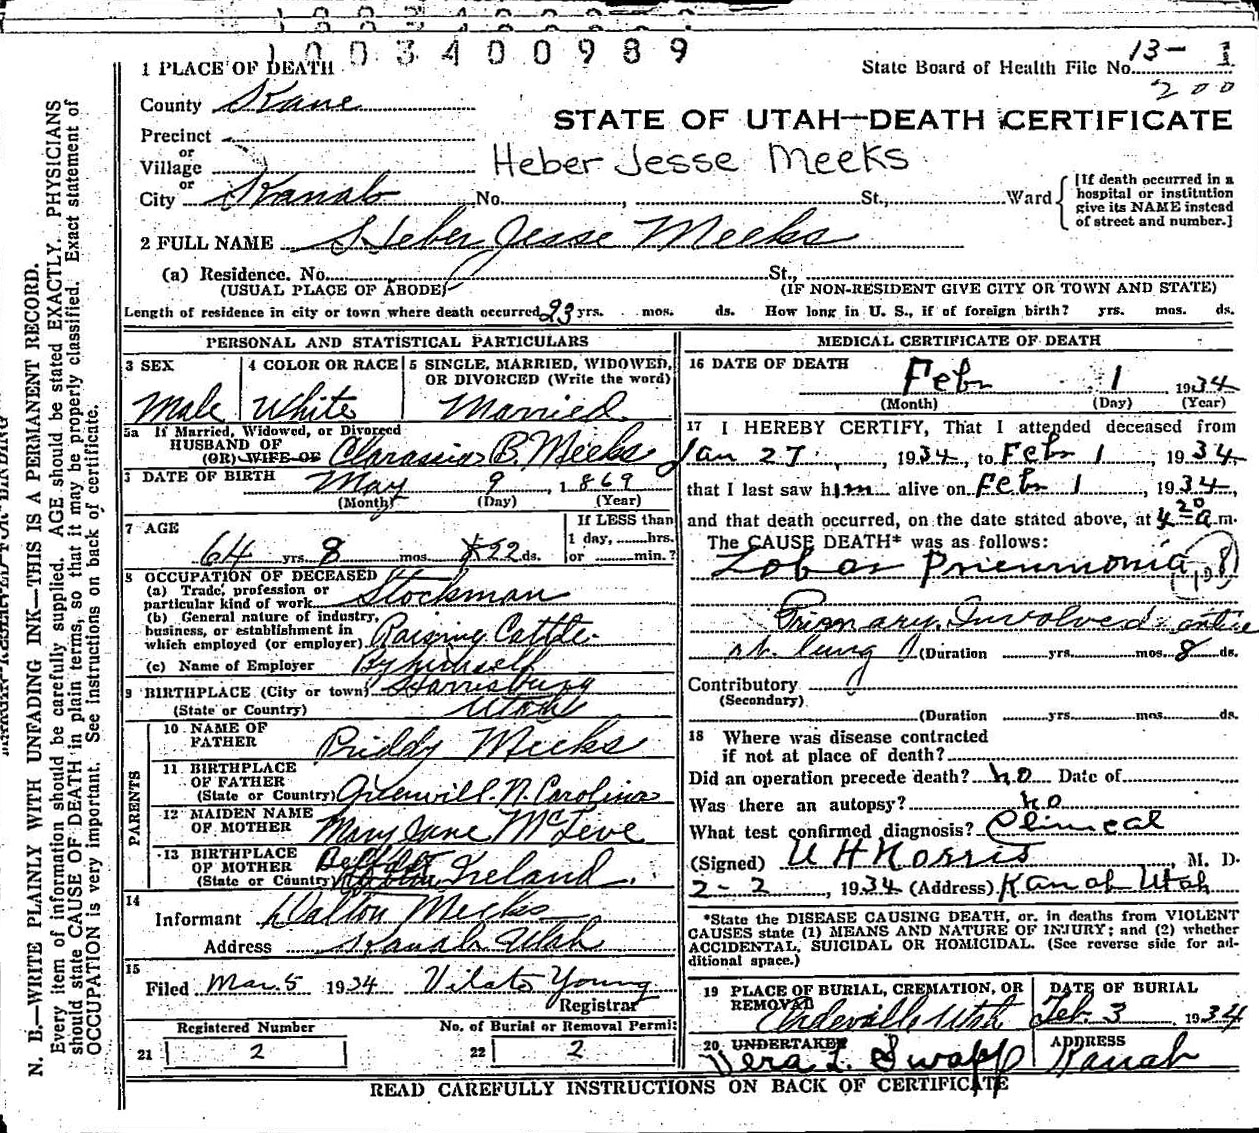 1003400989
1 PLACE OF DEATH
State Board of Health File No. 13-1
200
County Kane
STATE OF UTAH—DEATH CERTIFICATE
Precinct
or
Village
Heber Jesse Meeks
or
City Kanab No. , St., Ward
[If death occurred in a hospital or institution give its NAME instead of street and number.]
2 FULL NAME Heber Jesse Meeks
(a) Residence. No. St.,
(USUAL PLACE OF ABODE) (IF NON-RESIDENT GIVE CITY OR TOWN AND STATE)
Length of residence in city or town where death occurred 23 yrs. mos. ds. How long in U. S., if of foreign birth? yrs. mos. ds.
PERSONAL AND STATISTICAL PARTICULARS
3 SEX 4 COLOR OR RACE 5 SINGLE, MARRIED, WIDOWED, OR DIVORCED (Write the word)
Male White Married
5a If Married, Widowed, or Divorced
HUSBAND OF
(OR) WIFE OF B. Meeks
DATE OF BIRTH May 9, 1869
(Month) (Day) (Year)
7 AGE If LESS than
1 day, hrs.
64 yrs. 8 mos. 22 ds. or min.?
8 OCCUPATION OF DECEASED
(a) Trade, profession or
particular kind of work Stockman
(b) General nature of industry,
business, or establishment in
which employed (or employer) Raising Cattle
(c) Name of Employer By himself
9 BIRTHPLACE (City or town) Harrisburg
(State or Country) Utah
PARENTS
10 NAME OF
FATHER Priddy Meeks
11 BIRTHPLACE
OF FATHER
(State or Country) Greenvill. N. Carolina
12 MAIDEN NAME
OF MOTHER Mary Jane McCleve
13 BIRTHPLACE
OF MOTHER Belfast
(State or Country) Ireland.
14
Informant Dalton Meeks
Address Kanab Utah
15
Filed Mar. 5 1934 Vilate Young
Registrar
Registered Number No. of Burial or Removal Permit
21 2 22 2
MEDICAL CERTIFICATE OF DEATH
16 DATE OF DEATH
Feb 1 1934
(Month) (Day) (Year)
17 I HEREBY CERTIFY, That I attended deceased from
Jan 27, 1934, to Feb 1, 1934
that I last saw him alive on Feb 1, 1934,
and that death occurred, on the date stated above, at 4 20 a.m.
The CAUSE DEATH* was as follows:
Lobar Pneumonia 108
Primary Involved entire
rt. lung (Duration yrs. mos. 8 ds.
Contributory
(Secondary)
(Duration yrs. mos. ds.
18 Where was disease contracted
if not at place of death?
Did an operation precede death? no Date of
Was there an autopsy? no
What test confirmed diagnosis? Clinical
(Signed) U H Norris, M. D.
2-2, 1934 (Address) Kanab Utah
*State the DISEASE CAUSING DEATH, or. in deaths from VIOLENT
CAUSES state (1) MEANS AND NATURE OF INJURY; and (2) whether
ACCIDENTAL, SUICIDAL OR HOMICIDAL. (See reverse side for ad-
ditional space.)
19 PLACE OF BURIAL, CREMATION, OR REMOVAL DATE OF BURIAL
Orderville Utah Feb. 3 1934
20 UNDERTAKER ADDRESS
Vera L. Swapp Kanab
READ CAREFULLY INSTRUCTIONS ON BACK OF CERTIFICATE
N. B.—WRITE PLAINLY WITH UNFADING INK—THIS IS A PERMANENT RECORD.
Every item of information should be carefully supplied. AGE should be stated EXACTLY. PHYSICIANS
should state CAUSE OF DEATH in plain terms, so that it may be properly classified. Exact statement of
OCCUPATION is very important. See instructions on back of certificate.